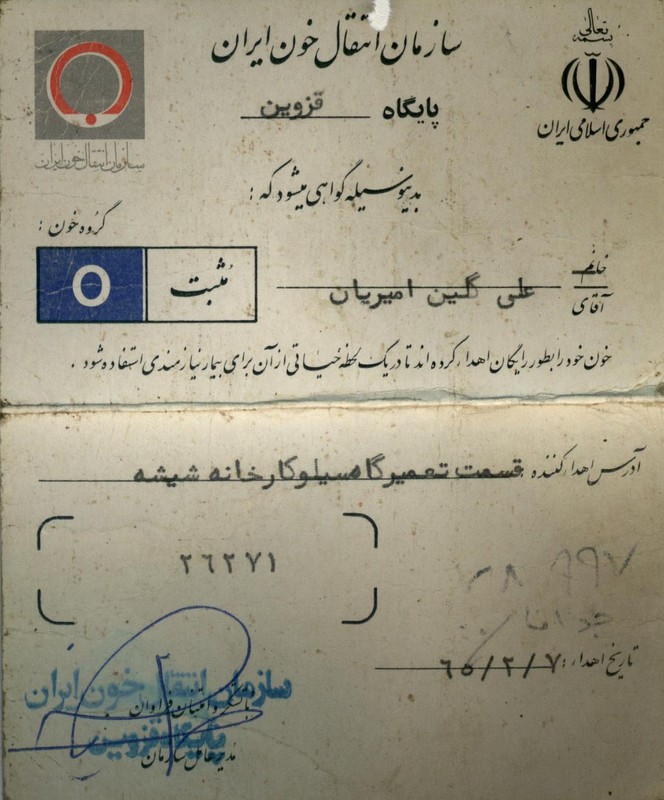 بسمه تعالی
جمهوری اسلامی ایران
سازمان انتقال خون ایران
سازمان انتقال خون ایران
پایگاه قزوین
بدینوسیله گواهی میشود که :
گروه خون :
O
مثبت
خانم
آقای
علی گلین امیریان
خون خود را بطور رایگان اهداء کرده اند تا در یک لحظه حیاتی از آن برای بیمار نیازمندی استفاده شود .
آدرس اهداء کننده قسمت تعمیرگاه سیلو کارخانه شیشه
۲۶۲۷۱
تاریخ اهداء : ۶۵/۲/۷
با تشکر و امتنان فراوان
مدیر عامل سازمان
سازمان انتقال خون ایران
پایگاه قزوین